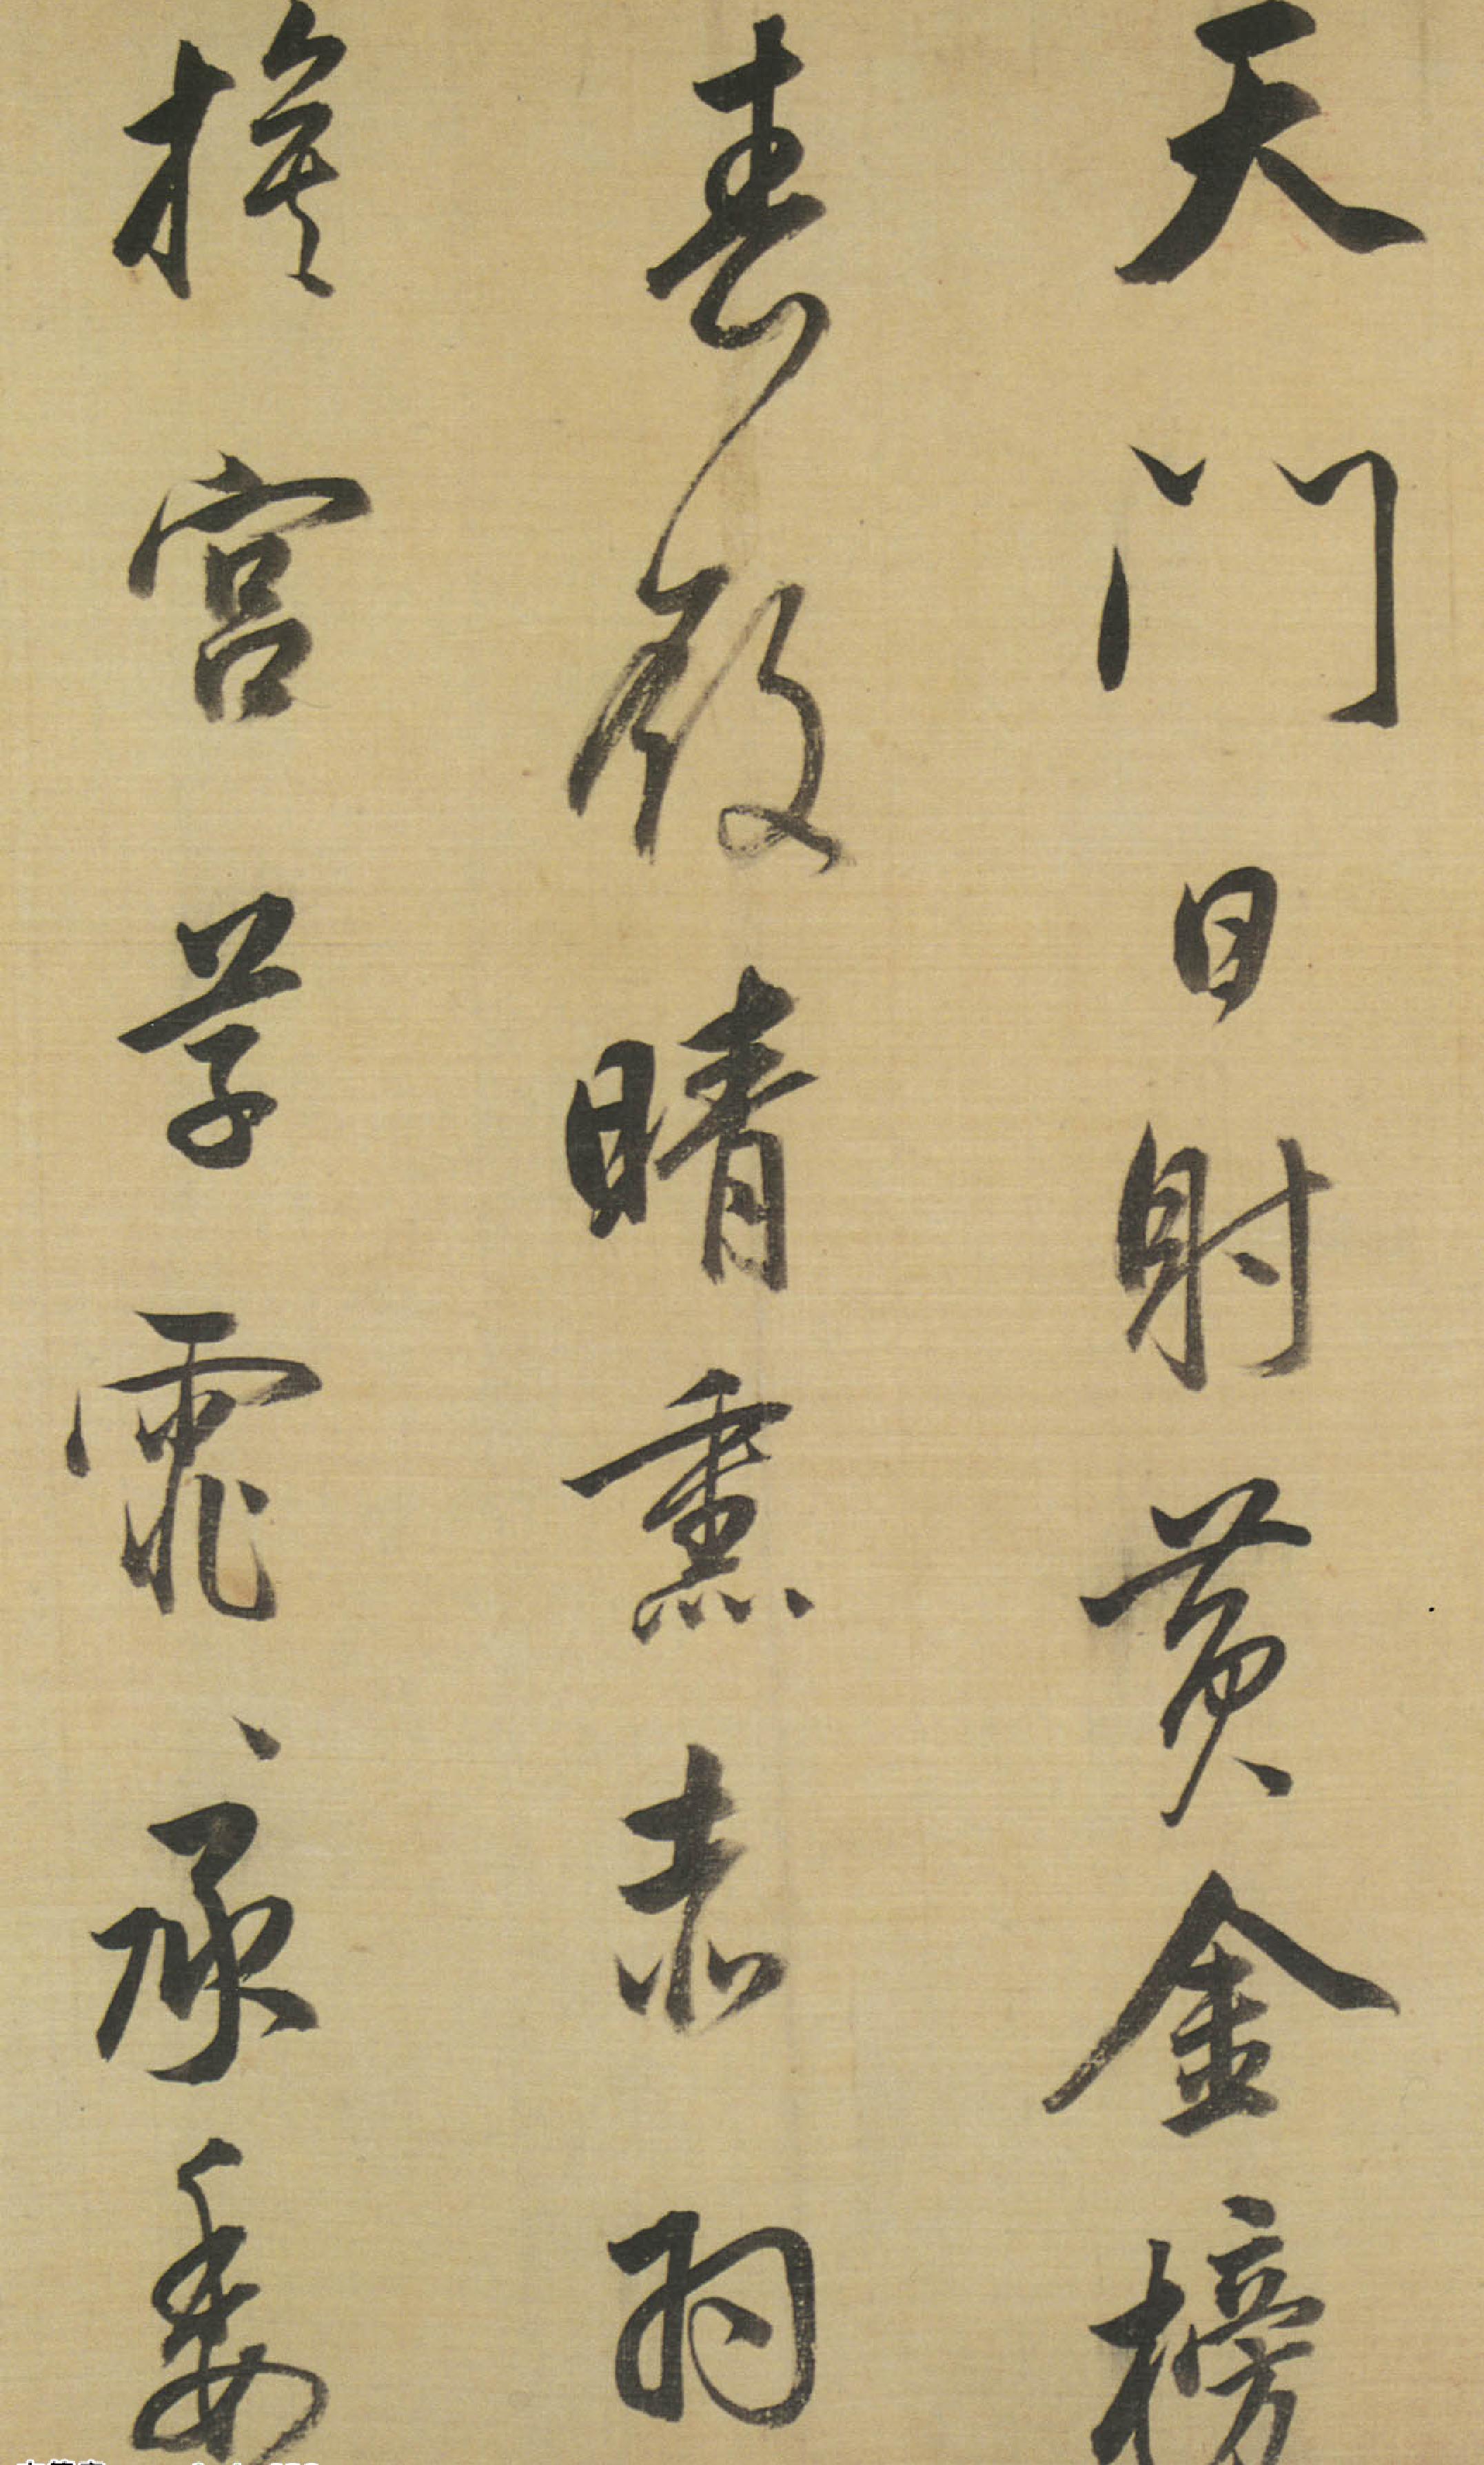 天門日射黄金榜
春殿晴熏赤羽
旗宮草霏、承委